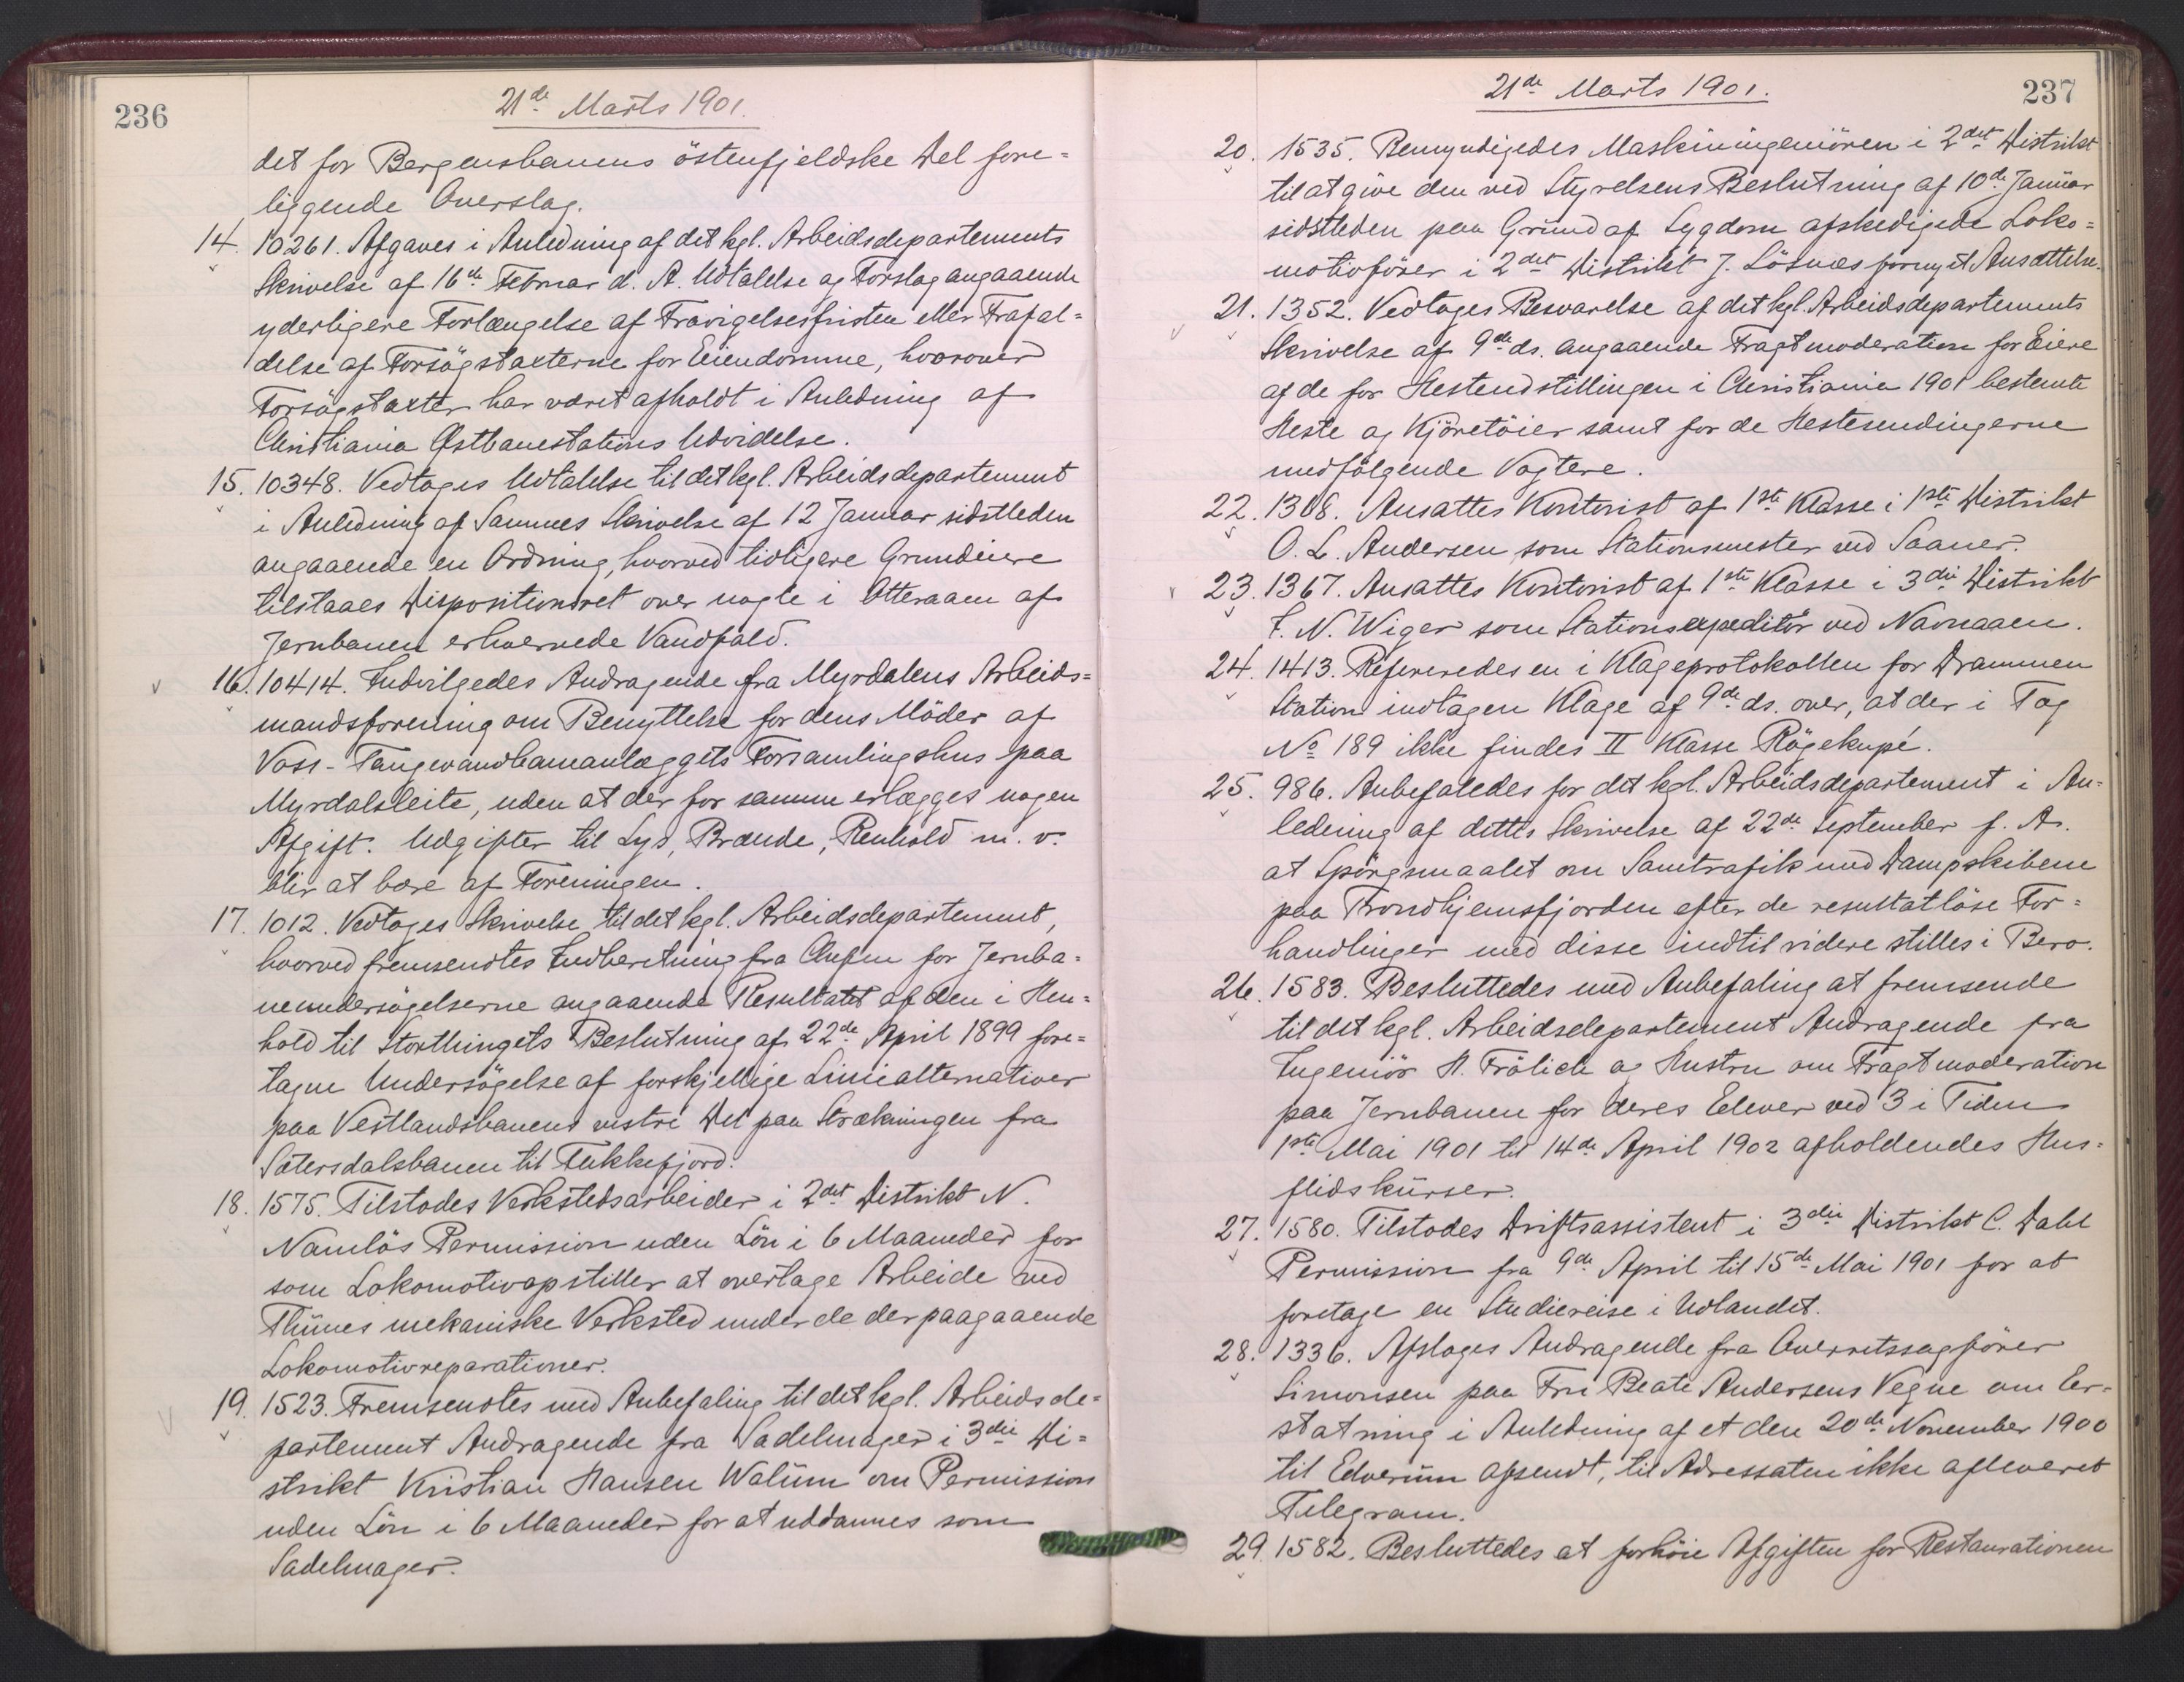 236
21de Marts 1901.
det for Bergensbanens östenfjeldske Del fore=
liggende Overslag.
14. 10261. Afgaves i Anledning af det kgl. Arbeidsdepartements
Skrivelse af 16de Februar d. A. Udtalelse og Forslag angaaende
yderligere Forlængelse af Fravigelsesfristen eller Frafal=
delse af Forsögstaxterne for Eiendomme, hvorover
Forsögstaxter har været afholdt i Anledning af
Christiania Østbanestations Udvidelse.
15. 10348. Vedtoges Udtalelse til det kgl. Arbeidsdepartement
i Anledning af Sammes Skrivelse af 12 Januar sidstleden
angaaende en Ordning, hvorved tidligere Grundeiere
tilstaaes Dispositionsret over nogle i Otteraaen af
Jernbanen erhvervede Vandfald.
16. 10414. Indvilgedes Andragende fra Myrdalens Arbeids=
mandsforening om Benyttelse for dens Möder af
Voss-Taugevandbaneanlæggets Forsamlingshus paa
Myrdalsleite, uden at der for samme erlægges nogen
Afgift. Udgifter til Lys, Brænde, Renhold m. v.
blir at bære af Foreningen.
17. 1012. Vedtoges Skrivelse til det kgl. Arbeidsdepartement,
hvorved fremsendtes Indberetning fra Chefen for Jernba=
neundersögelserne angaaende Resultatet af den i Hen=
hold til Storthingets Beslutning af 22de April 1899 fore=
tagne Undersögelse af forskjellige Liniealternativer
paa Vestlandsbanens vestre Del paa Strækningen fra
Sætersdalsbanen til Flekkefjord.
18. 1575. Tilstodes Verkstedsarbeider i 2det Distrikt N.
Namlös Permission uden Lön i 6 Maaneder for
som Lokomotivopstiller at overtage Arbeide ved
Thünes mekaniske Verksted under de der paagaaende
Lokomotivreparationer.
19. 1523. Fremsendtes med Anbefaling til det kgl. Arbeidsde=
partement Andragende fra Sadelmager i 3die Di=
strikt Kristian Hansen Walüm om Permission
uden Lön i 6 Maaneder for at uddannes som
Sadelmager.
237
21de Marts 1901.
20. 1535. Bemyndigedes Maskiningeniören i 2det Distrikt
til at give den ved Styrelsens Beslutning af 10de Januar
sidstleden paa Grund af Sygdom afskedigede Loko=
motivförer i 2det Distrikt J. Lösnæs fornyet Ansættelse.
21. 1352. Vedtoges Besvarelse af det kgl. Arbeidsdepartements
Skrivelse af 9de ds. angaaende Fragtmoderation for Eiere
af de for Hesteudstillingen i Christiania 1901 bestemte
Heste og Kjöretöier samt for de Hestesendingerne
medfölgende Vogtere.
22. 1308. Ansattes Kontorist af 1ste Klasse i 1ste Distrikt
O. L. Andersen som Stationsmester ved Saaner.
23. 1367. Ansattes Kontorist af 1ste Klasse i 3die Distrikt
F. N. Wiger som Stationsexpeditör ved Navnaaen.
24. 1413. Refereredes en i Klageprotokollen for Drammen
Station indtagen Klage af 9de ds. over, at der i Tog
No 189 ikke findes II Klasse Rögekupé.
25. 986. Anbefaledes for det kgl. Arbeidsdepartement i An=
ledning af dettes Skrivelse af 22de September f. A.
at Spörgsmaalet om Samtrafik med Dampskibene
paa Trondhjemsfjorden efter de resultatlöse For=
handlinger med disse indtil videre stilles i Bero.
26. 1583. Besluttedes med Anbefaling at fremsende
til det kgl. Arbeidsdepartement Andragende fra
Ingeniör H. Frölich og Hustru om Fragtmoderation
paa Jernbanen for deres Elever ved 3 i Tiden
1ste Mai 1901 til 14de April 1902 afholdendes Hus=
flidskürser.
27. 1580. Tilstodes Driftsassistent i 3die Distrikt C. Dahl
Permission fra 9de April til 15de Mai 1901 for at
foretage en Studiereise i Udlandet.
28. 1336. Afsloges Andragende fra Overretssagförer
Simonsen paa Fru Beate Andersens Vegne om Er=
statning i Anledning af et den 20de November 1900
til Elverum afsendt, til Adressaten ikke afleveret
Telegram.
29. 1582. Besluttedes at forhöie Afgiften for Restaurationen